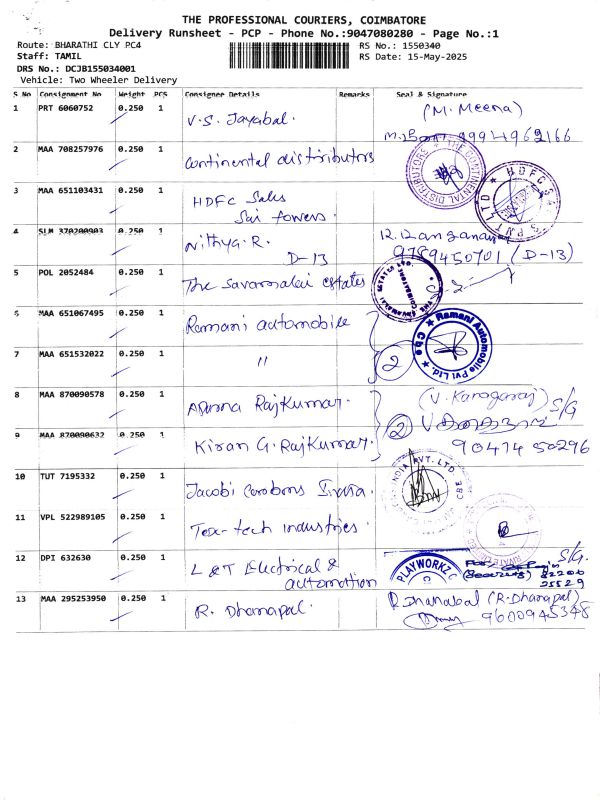 THE PROFESSIONAL COURIERS, COIMBATORE
Delivery Runsheet - PCP - Phone No.:9047080280 - Page No.:1
Route: BHARATHI CLY PC4 RS No.: 1550340
Staff: TAMIL RS Date: 15-May-2025
DRS No.: DCJB155034001
Vehicle: Two Wheeler Delivery
S No Consignment No Weight PCS Consignee Details Remarks Seal & Signature
1 PRT 6060752 0.250 1 V.S. Jayabal. (M. Meena)
9994962166
2 MAA 708257976 0.250 1 Continental distributors
3 MAA 651103431 0.250 1 HDFC Sales
Sai towers.
4 SLM 370200903 0.250 1 Nithya. R.
D-13 9789450701 (D-13)
5 POL 2052484 0.250 1 The Savamalai estates
6 MAA 651067495 0.250 1 Ramani automobile Ramani Automobile Pvt Ltd. Cbe
7 MAA 651532022 0.250 1 " 2
8 MAA 870090578 0.250 1 Aparna RajKumar. (V. Kanagaraj) S/G
9 MAA 870090632 0.250 1 Kiran G. RajKumar. 2 9047450296
10 TUT 7195332 0.250 1 Jacobi Carbons India.
11 VPL 522989105 0.250 1 Tex-tech industries.
12 DPI 632630 0.250 1 L & T Electrical & PLAYWORKZ S/G
automation (Security)
13 MAA 295253950 0.250 1 R. Dhanapal. R. Dhanabal (R. Dhanapal)
9600945348